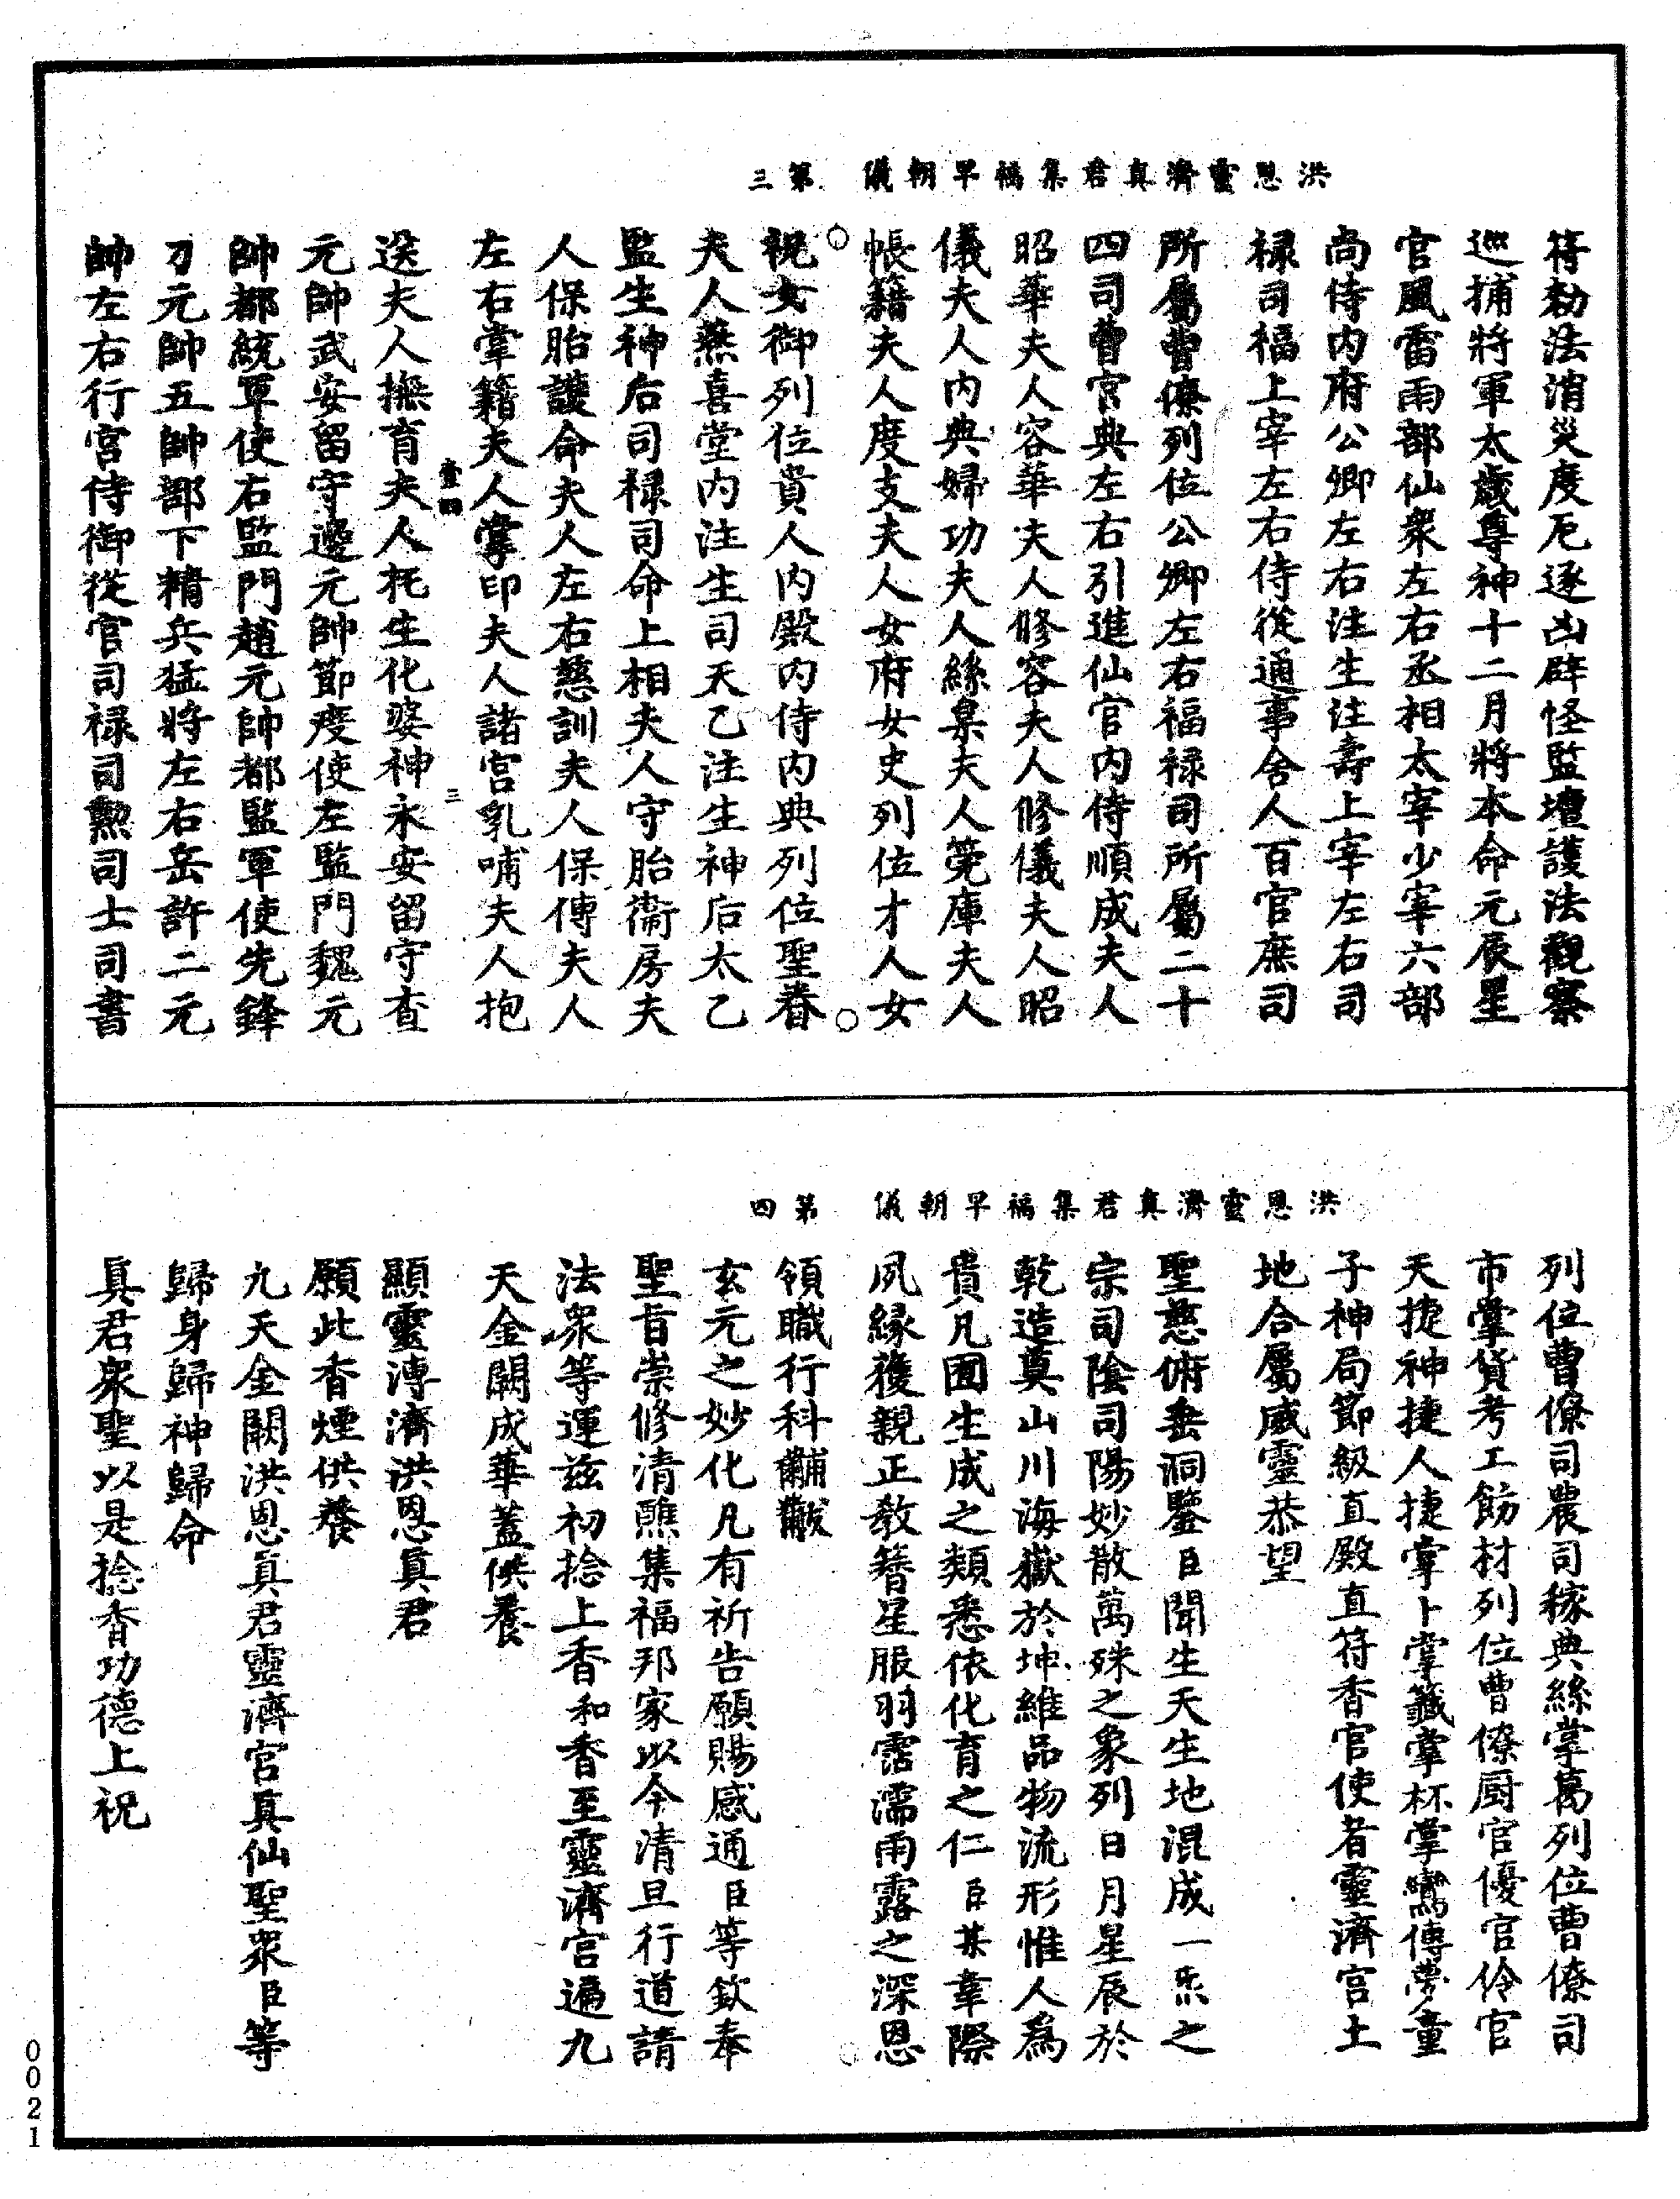 洪恩靈濟真君集福早朝儀　第三
符勑法消災度厄逐凶辟怪監壇護法觀察
巡捕將軍太歲尊神十二月將本命元辰星
官風雷雨部仙衆左右丞相太宰少宰六部
尚侍內府公卿左右注生注壽上宰左右司
禄司福上宰左右侍從通事舍人百官庶司
所屬曹僚列位公卿左右福禄司所屬二十
四司曹官典左右引進仙官內侍順成夫人
昭華夫人容華夫人修容夫人修儀夫人昭
儀夫人內典婦功夫人絲枲夫人筦庫夫人
帳籍夫人度支夫人女府女史列位才人女
祝女御列位貴人內殿內侍內典列位聖眷
夫人燕喜堂內注生司天乙注生神后太乙
監生神后司禄司命上相夫人守胎衞房夫
人保胎護命夫人左右慈訓夫人保傅夫人
左右掌籍夫人掌印夫人諸宮乳哺夫人抱
壹四　三
送夫人撫育夫人托生化婆神永安留守查
元帥武安留守邊元帥節度使左監門魏元
帥都統軍使右監門趙元帥都監軍使先鋒
刀元帥五帥部下精兵猛將左右岳許二元
帥左右行宮侍御從官司禄司勲司士司書
洪恩靈濟真君集福早朝儀　第四
列位曹僚司農司稼典絲掌葛列位曹僚司
市掌貨考工飭材列位曹僚厨官優官伶官
天捷神捷人捷掌卜掌籤掌杯掌鸞傳夢童
子神局節級直殿直符香官使者靈濟宮土
地合屬威靈恭望
聖慈俯垂洞鑒臣聞生天生地混成一炁之
宗司陰司陽妙散萬殊之象列日月星辰於
乾造奠山川海嶽於坤維品物流形惟人爲
貴凡囿生成之類悉依化育之仁臣某幸際
夙緣獲親正教簪星服羽霑濡雨露之深恩
領職行科黼黻
玄元之妙化凡有祈告願賜感通臣等欽奉
聖旨崇修清醮集福邦家以今清旦行道請
法衆等運茲初捻上香和香至靈濟宮遍九
天金闕成華蓋供養
顯靈溥濟洪恩真君
願此香煙供養
九天金闕洪恩真君靈濟宮真仙聖衆臣等
歸身歸神歸命
真君衆聖以是捻香功德上祝
0021